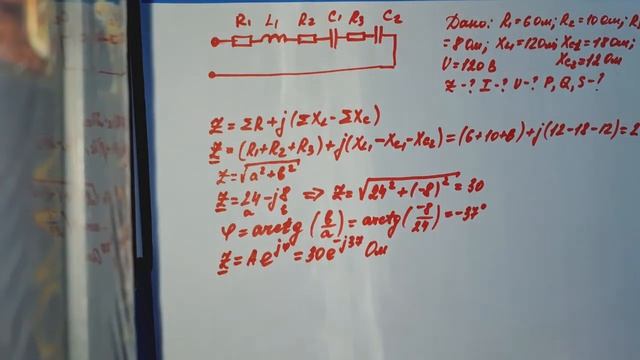 R₁ L₁ R₂ C₁ R₃ C₂
Дано: R₁=6 Ом; R₂=10 Ом; R
=8 Ом; XL₁=12 Ом; XC₂=18 Ом;
U=120 В XC₃=12 Ом
Z-? I-? U-? P, Q, S-?
Z = ΣR+j(ΣXL-ΣXC)
Z = (R₁+R₂+R₃)+j(XL₁-XC₁-XC₂)=(6+10+8)+j(12-18-12)=2
Z=√a²+b²
Z=24-j8 ⇒ Z=√24²+(-8)²=30
a b
φ=arctg(b/a)=arctg(-8/24)=-37°
Z=Ae^jφ=30e^-j37 Ом